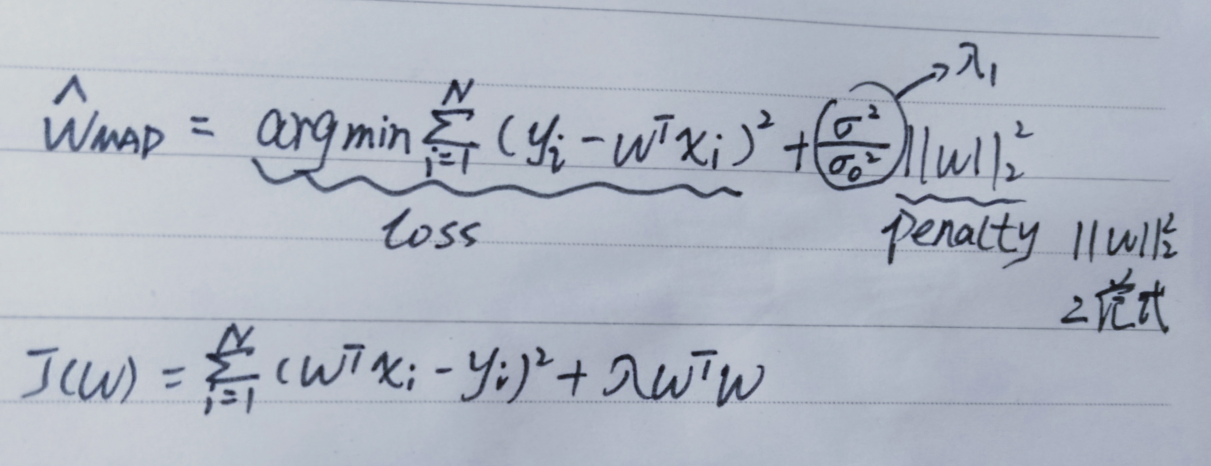 λ₁
ŵ_MAP = argmin ∑_{i=1}^{N} (y_i - w^T x_i)² + (σ²/σ₀²) ||w||₂²
loss
penalty ||w||₂²
2范式
J(w) = ∑_{i=1}^{N} (w^T x_i - y_i)² + λw^T w